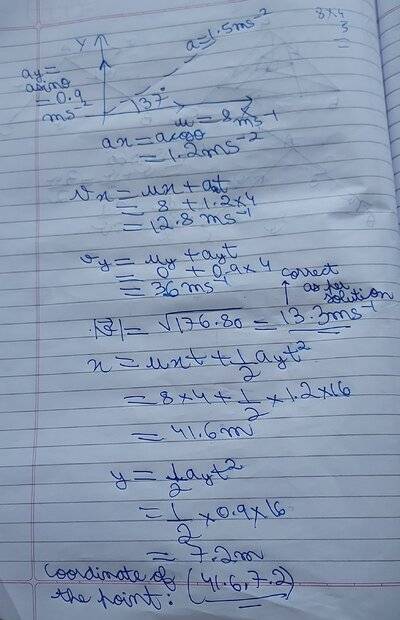 8×4
3
y
a=1.5ms⁻²
ay=
asinθ
= 0.9
ms⁻
37°
u = 8ms⁻¹
ax = acosθ
= 1.2ms⁻²
vx = ux + at
= 8 + 1.2×4
= 12.8 ms⁻¹
vy = uy + ayt
= 0 + 0.9×4
= 36 ms⁻¹
correct
as per
solution
|v⃗| = √176.80 = 13.3ms⁻¹
x = uxt + 1/2 ayt²
= 8×4 + 1/2 × 1.2×16
= 41.6m
y = 1/2 ayt²
= 1/2 × 0.9×16
= 7.2m
coordinate of
the point: (41.6, 7.2)